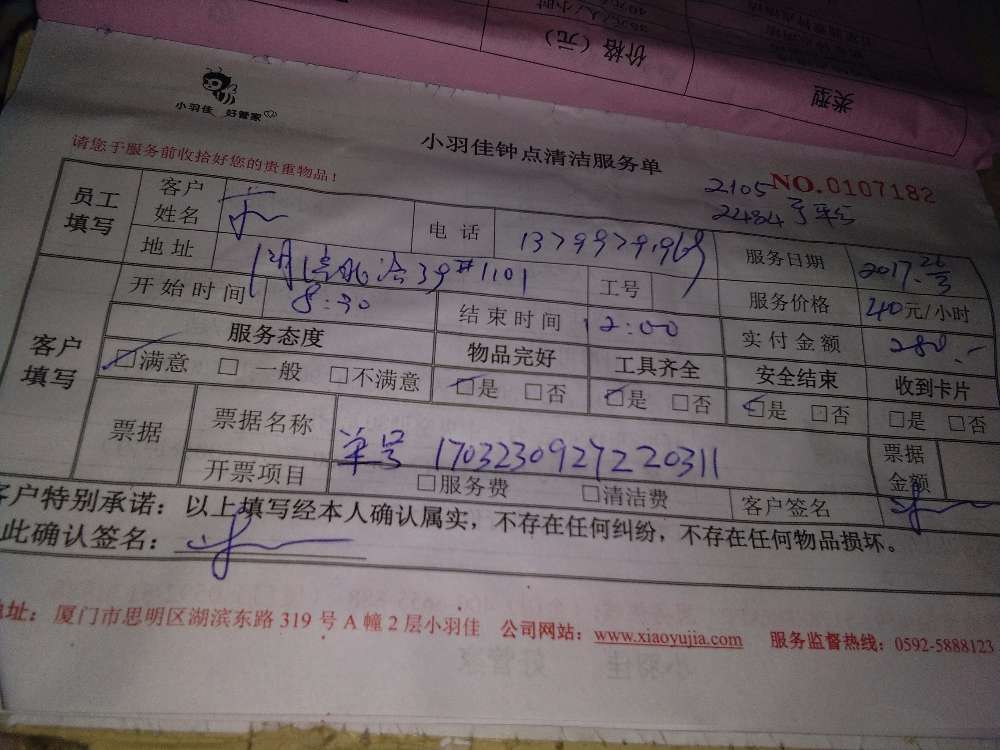 小羽佳 好管家
小羽佳钟点清洁服务单
请您于服务前收拾好您的贵重物品!
2105
NO.0107182
2484
员工填写 客户姓名 电话 服务日期 2017.
地址 39#1101 工号 服务价格 40元/小时
客户填写 开始时间 8:30 结束时间 12:00 实付金额 280.-
服务态度 物品完好 工具齐全 安全结束 收到卡片
☑满意 □一般 □不满意 ☑是 □否 ☑是 □否 ☑是 □否 □是 □否
票据 票据名称 单号 1703230927220311 票据金额
开票项目 □服务费 □清洁费 客户签名
客户特别承诺:以上填写经本人确认属实,不存在任何纠纷,不存在任何物品损坏。
此确认签名:
地址:厦门市思明区湖滨东路 319 号 A 幢 2 层小羽佳 公司网站:www.xiaoyujia.com 服务监督热线:0592-5888123
类型
价格(元)